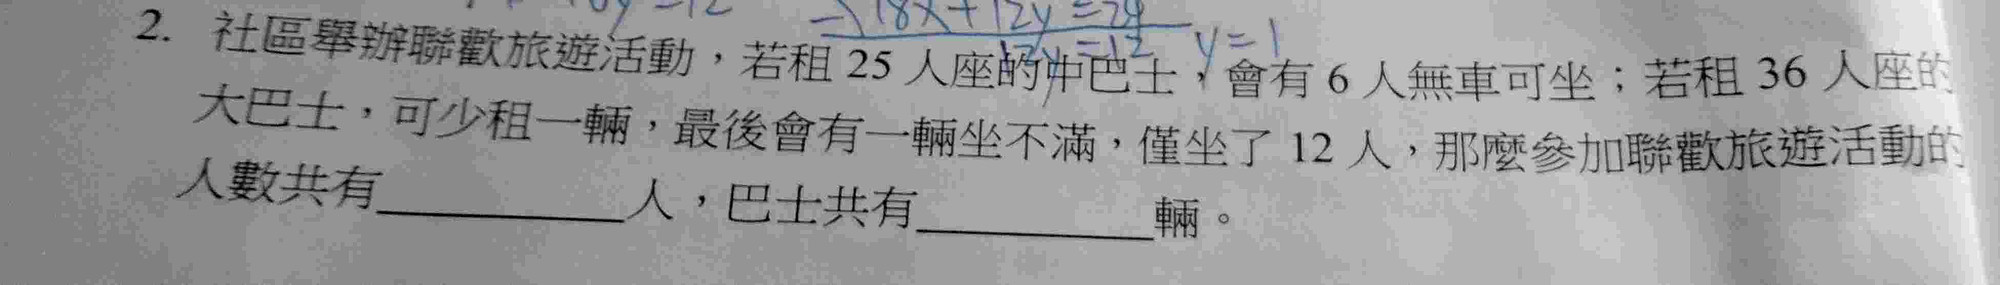 −) 18x+12y=24
12y=12 y=1
2. 社區舉辦聯歡旅遊活動，若租 25 人座的中巴士，會有 6 人無車可坐；若租 36 人座的
大巴士，可少租一輛，最後會有一輛坐不滿，僅坐了 12 人，那麼參加聯歡旅遊活動的
人數共有____________人，巴士共有____________輛。